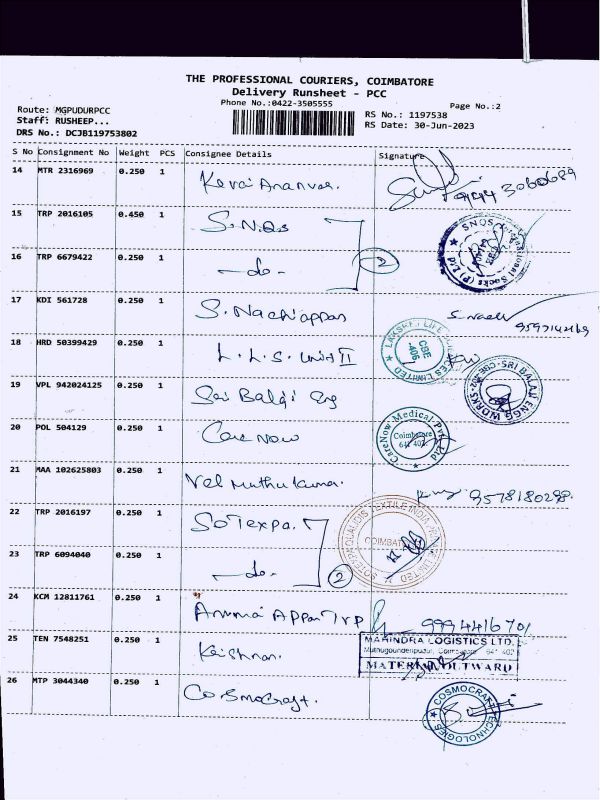 THE PROFESSIONAL COURIERS, COIMBATORE
Delivery Runsheet - PCC
Phone No.:0422-3505555
Page No.:2
Route: MGPUDURPCC
Staff: RUSHEEP...
DRS No.: DCJB119753802
RS No.: 1197538
RS Date: 30-Jun-2023
S No Consignment No Weight PCS Consignee Details Signature
14 MTR 2316969 0.250 1
9994 3060689
15 TRP 2016105 0.450 1 S.N.Qs
SNQS International Socks (P) Ltd
16 TRP 6679422 0.250 1 -do- 2
17 KDI 561728 0.250 1 S. Nachiappan
9597142169
18 HRD 50399429 0.250 1 L.L.S. Unit II
LAKSHMI LIFE SCIENCES LIMITED
CBE
-406
19 VPL 942024125 0.250 1 Sri Balaji Eng
SRI BALAJI ENGG WORKS
20 POL 504129 0.250 1 Care Now
CareNow Medical Pvt Ltd
Coimbatore
641 407
21 MAA 102625803 0.250 1 Vel Muthu Kumar.
9578180298
22 TRP 2016197 0.250 1 SoTexpa.
TEXTILE INDIA PRIVATE LIMITED
COIMBATORE
23 TRP 6094040 0.250 1 -do- 2
24 KCM 12811761 0.250 1 Amma Appan Trp
9994416701
25 TEN 7548251 0.250 1 Krishnan.
MAHINDRA LOGISTICS LTD.
Muthugoundenpudur, Coimbatore 641 402
MATERIAL OUTWARD
26 MTP 3044340 0.250 1 Cosmocraft.
COSMOCRAFT TECHNOLOGIES